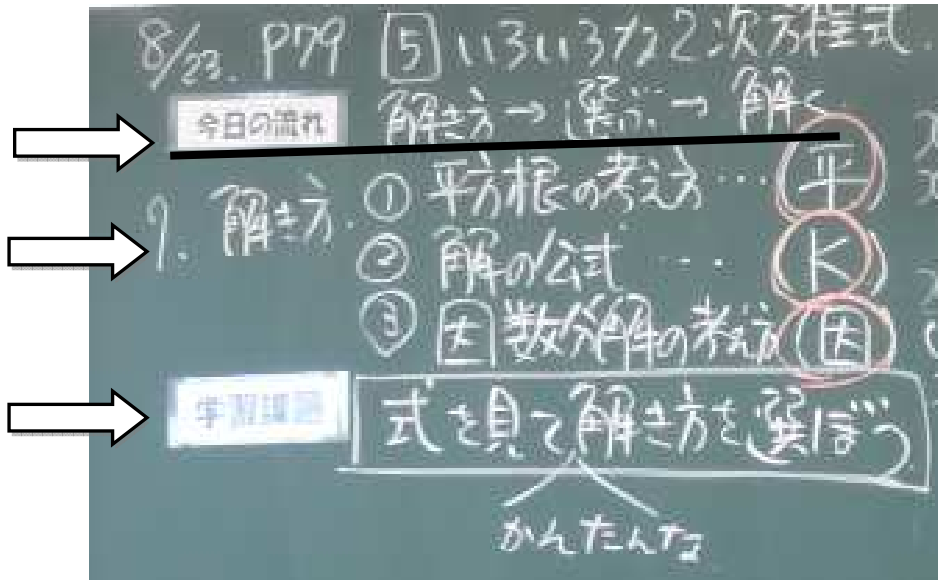 8/23. P79 5 いろいろな2次方程式.
今日の流れ 解き方→選ぶ→解く
1. 解き方. ① 平方根の考え方… 平
② 解の公式 … K
③ 因数分解の考え方 因
学習課題 式を見て解き方を選ぼう
かんたんな